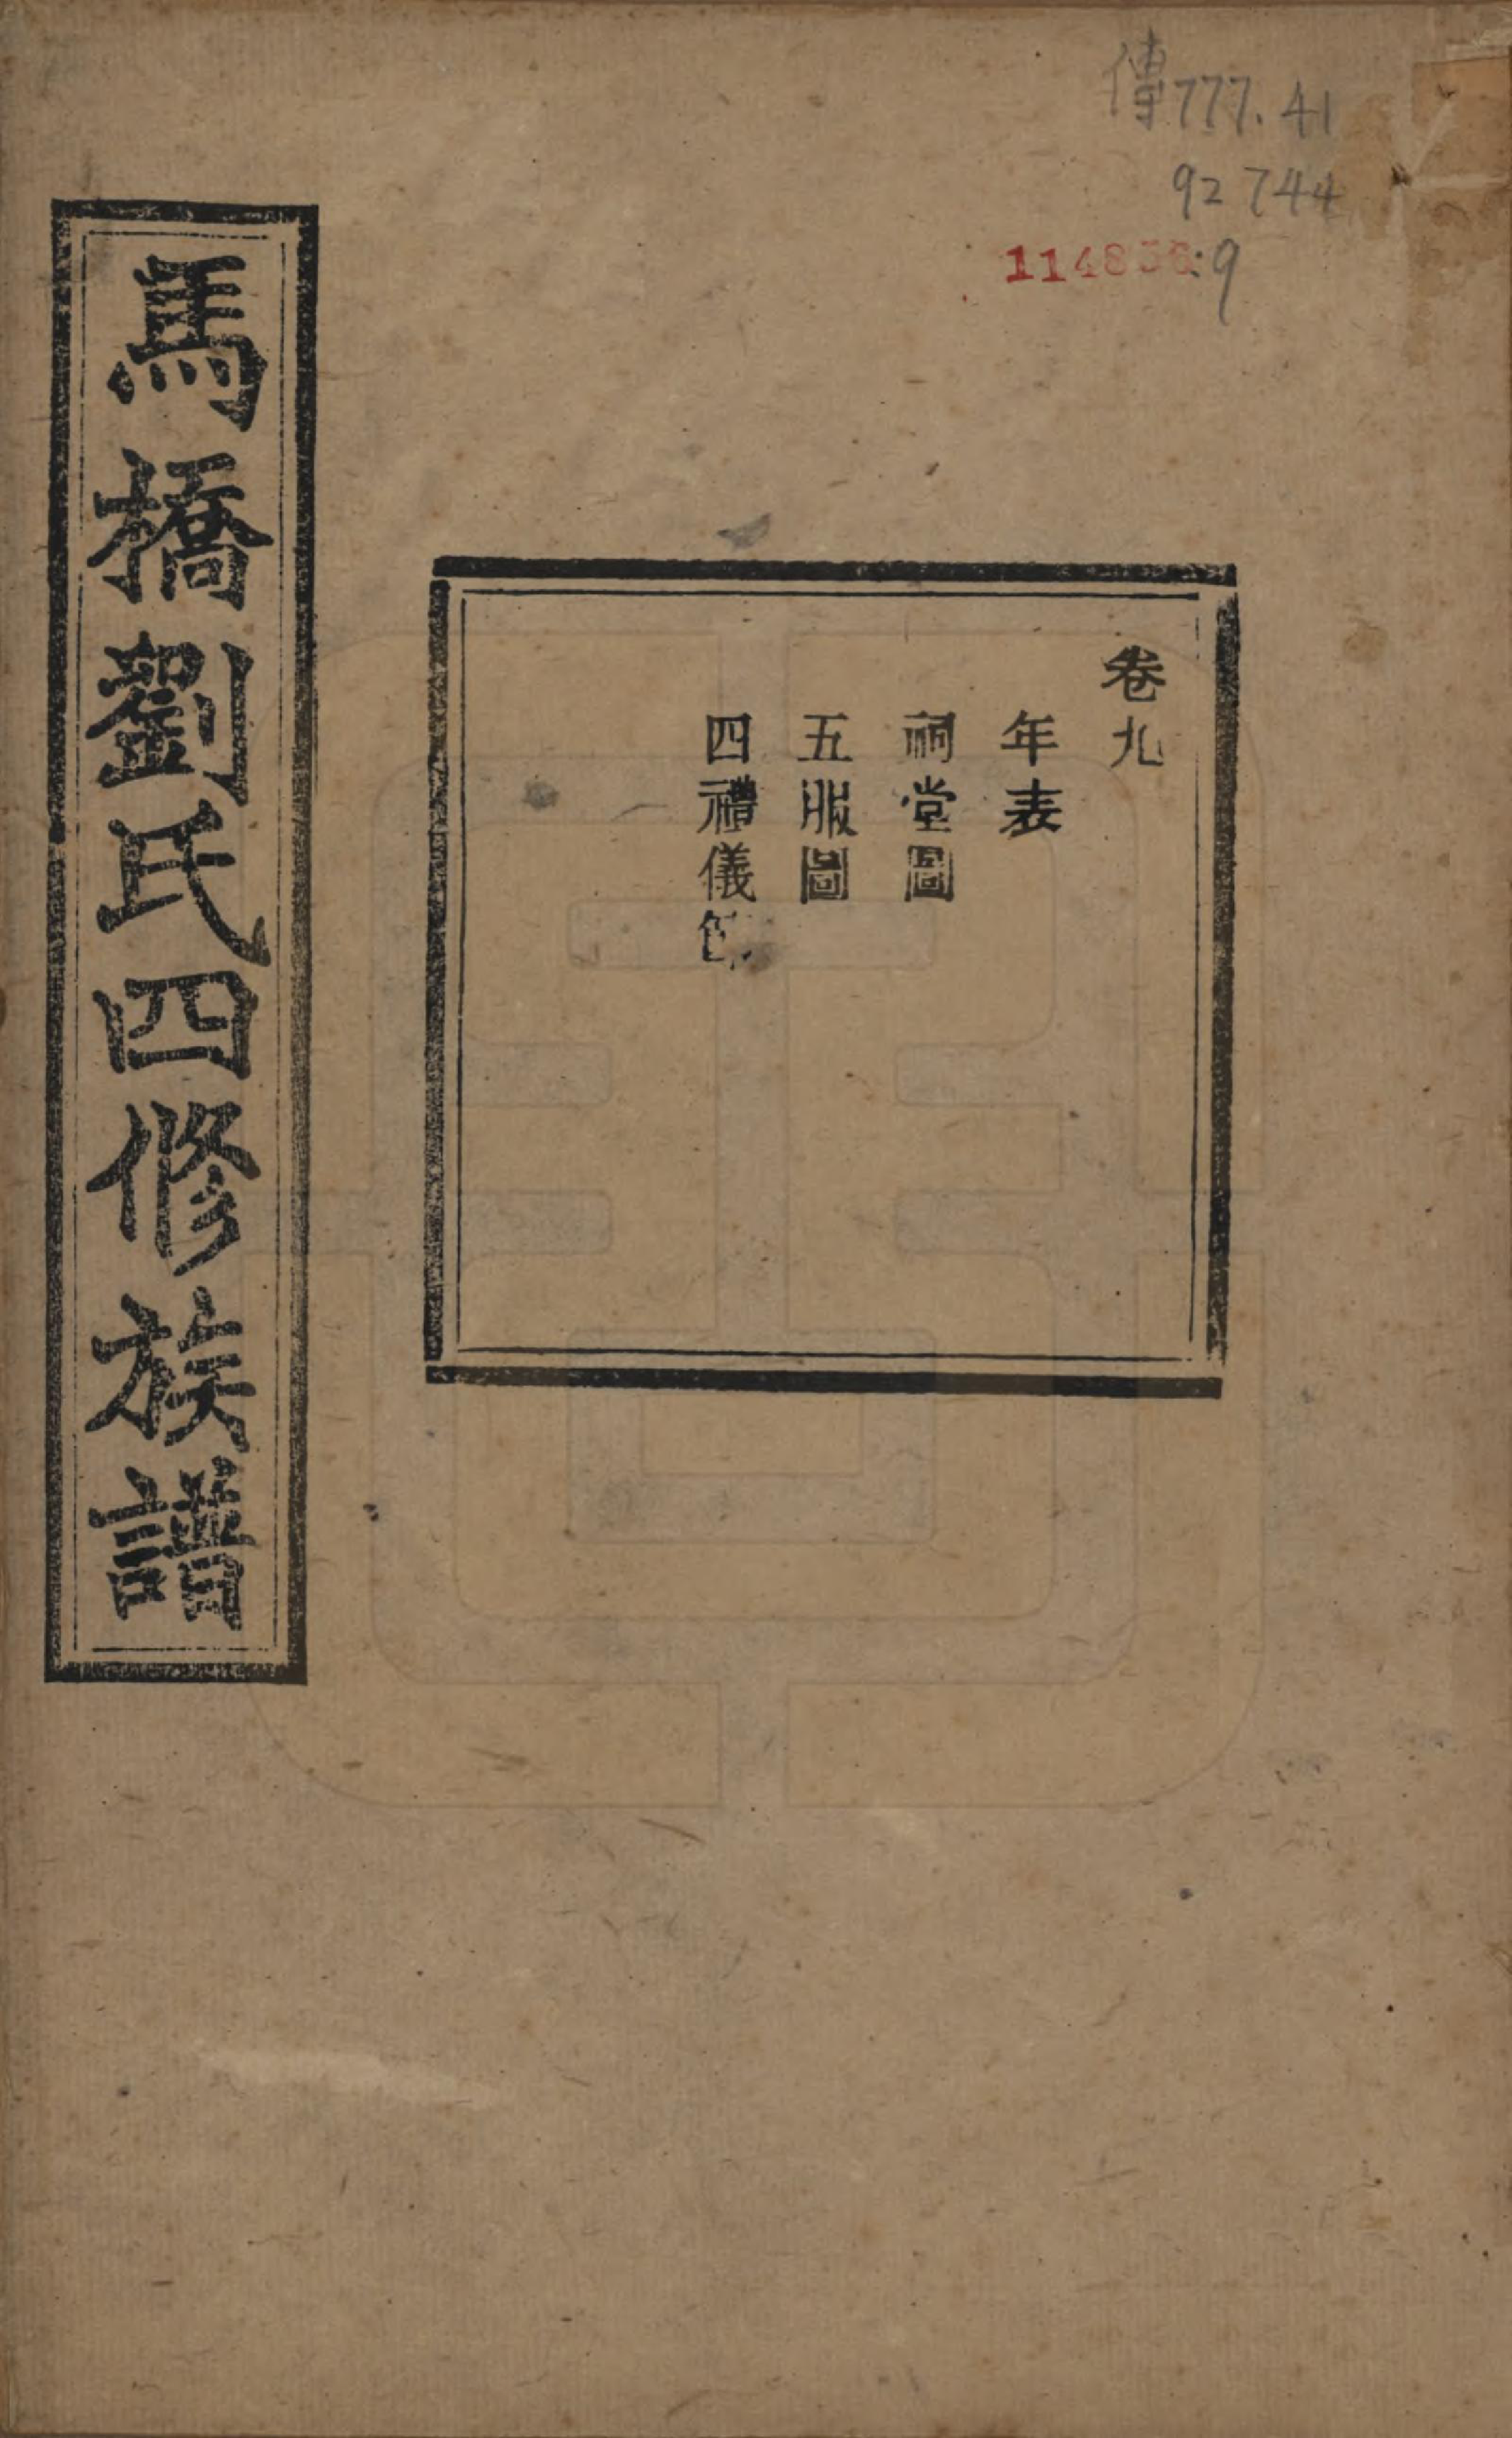 傳777.41
92744
:9
卷九
年表
祠堂圖
五服圖
四禮儀
馬橋劉氏四修族譜